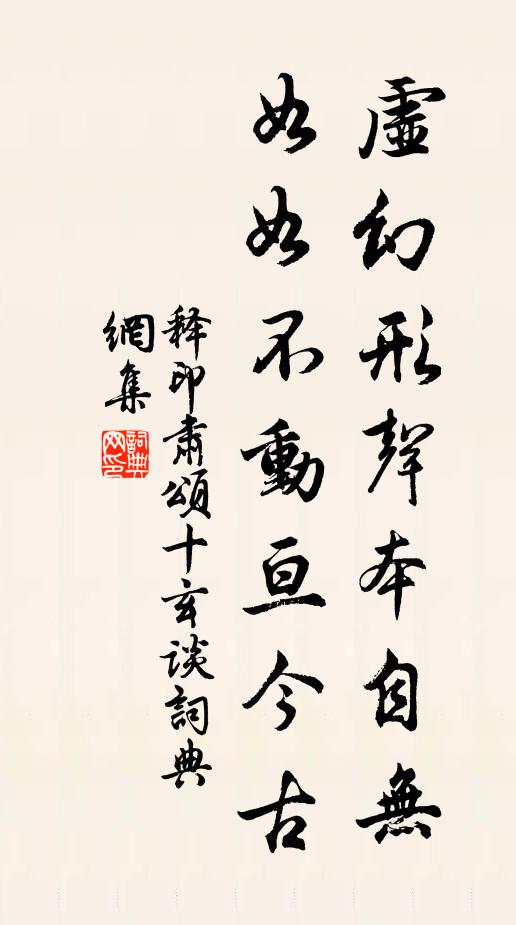 虛幻形聲本自無
如如不動亘今古
释印肅頌十玄谈詞典
網集
詞典网印